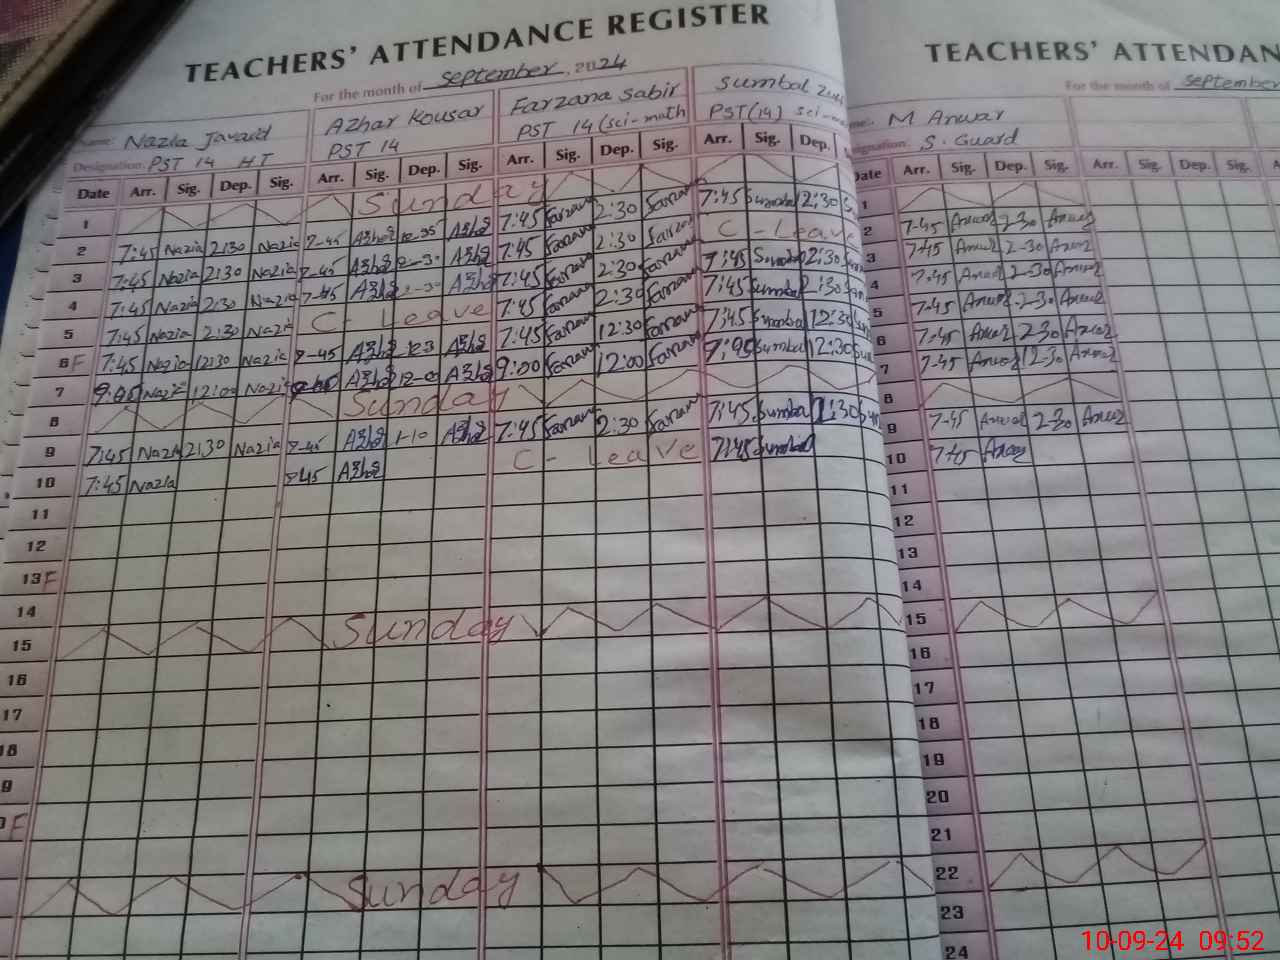 TEACHERS' ATTENDANCE REGISTER
For the month of September, 2024
Name: Nazia Javaid Azhar Kousar Farzana Sabir Sumbal
Designation: PST 14 HT PST 14 PST 14 (sci-math PST(14) sci-
Date Arr. Sig. Dep. Sig. Arr. Sig. Dep. Sig. Arr. Sig. Dep. Sig. Arr. Sig. Dep.
1 Sunday
2 7:45 Nazia 2:30 Nazia 7-45 Azhar Azhar 7:45 Farzana 2:30 Farzana 7:45 Sumbal 2:30
3 7:45 Nazia 2:30 Nazia 7-45 Azhar Azhar 7:45 Farzana 2:30 Farzana C-Leave
4 7:45 Nazia 2:30 Nazia 7-45 Azhar Azhar 7:45 Farzana 2:30 Farzana 7:45 Sumbal 2:30
5 7:45 Nazia 2:30 Nazia C-Leave 7:45 Farzana 2:30 Farzana 7:45 Sumbal 2:30
6F 7:45 Nazia 12:30 Nazia Azhar Azhar 7:45 Farzana 12:30 Farzana 7:45 Sumbal 12:30
7 9:00 Nazia 12:00 Nazia Azhar 12-00 Azhar 9:00 Farzana 12:00 Farzana Sumbal 2:30
8 Sunday
9 7:45 Nazia 2:30 Nazia 7-45 Azhar 1-10 Azhar 7:45 Farzana 2:30 Farzana 7:45 Sumbal 1:30
10 7:45 Nazia Azhar C-Leave 7:45 Sumbal
11
12
13F
14
15 Sunday
16
17
18
9
F
Sunday
TEACHERS' ATTENDAN
For the month of September
M Anwar
Designation: S. Guard
Date Arr. Sig. Dep. Sig. Arr. Sig. Dep. Sig.
1
2 7-45 Anwar 2-30 Anwar
3 7-45 Anwar 2-30 Anwar
4 7-45 Anwar 2-30 Anwar
5 7-45 Anwar 2-30 Anwar
6 7-45 Anwar 2-30 Anwar
7 7-45 Anwar 2-30 Anwar
8
9 7-45 Anwar 2-30 Anwar
10 7-45 Anwar
11
12
13
14
15
16
17
18
19
20
21
22
23
24
10-09-24 09:52